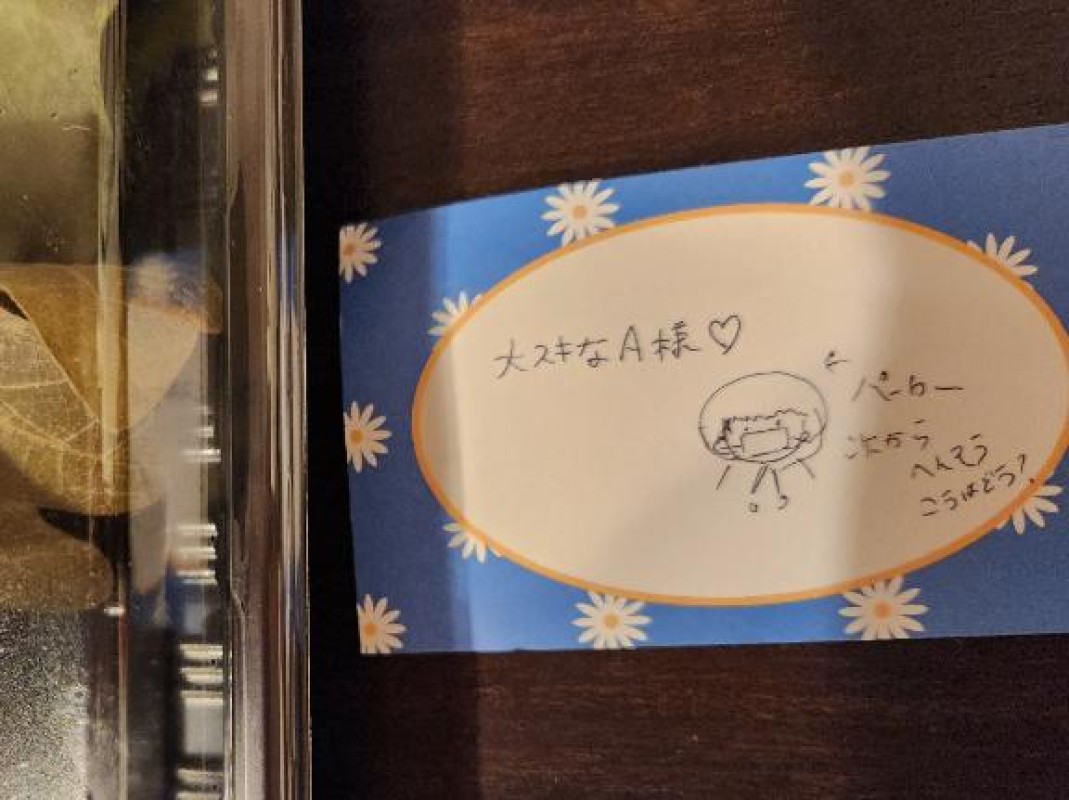 大スキなA様♡
← パーカー
次から
へんそう
こうはどう?